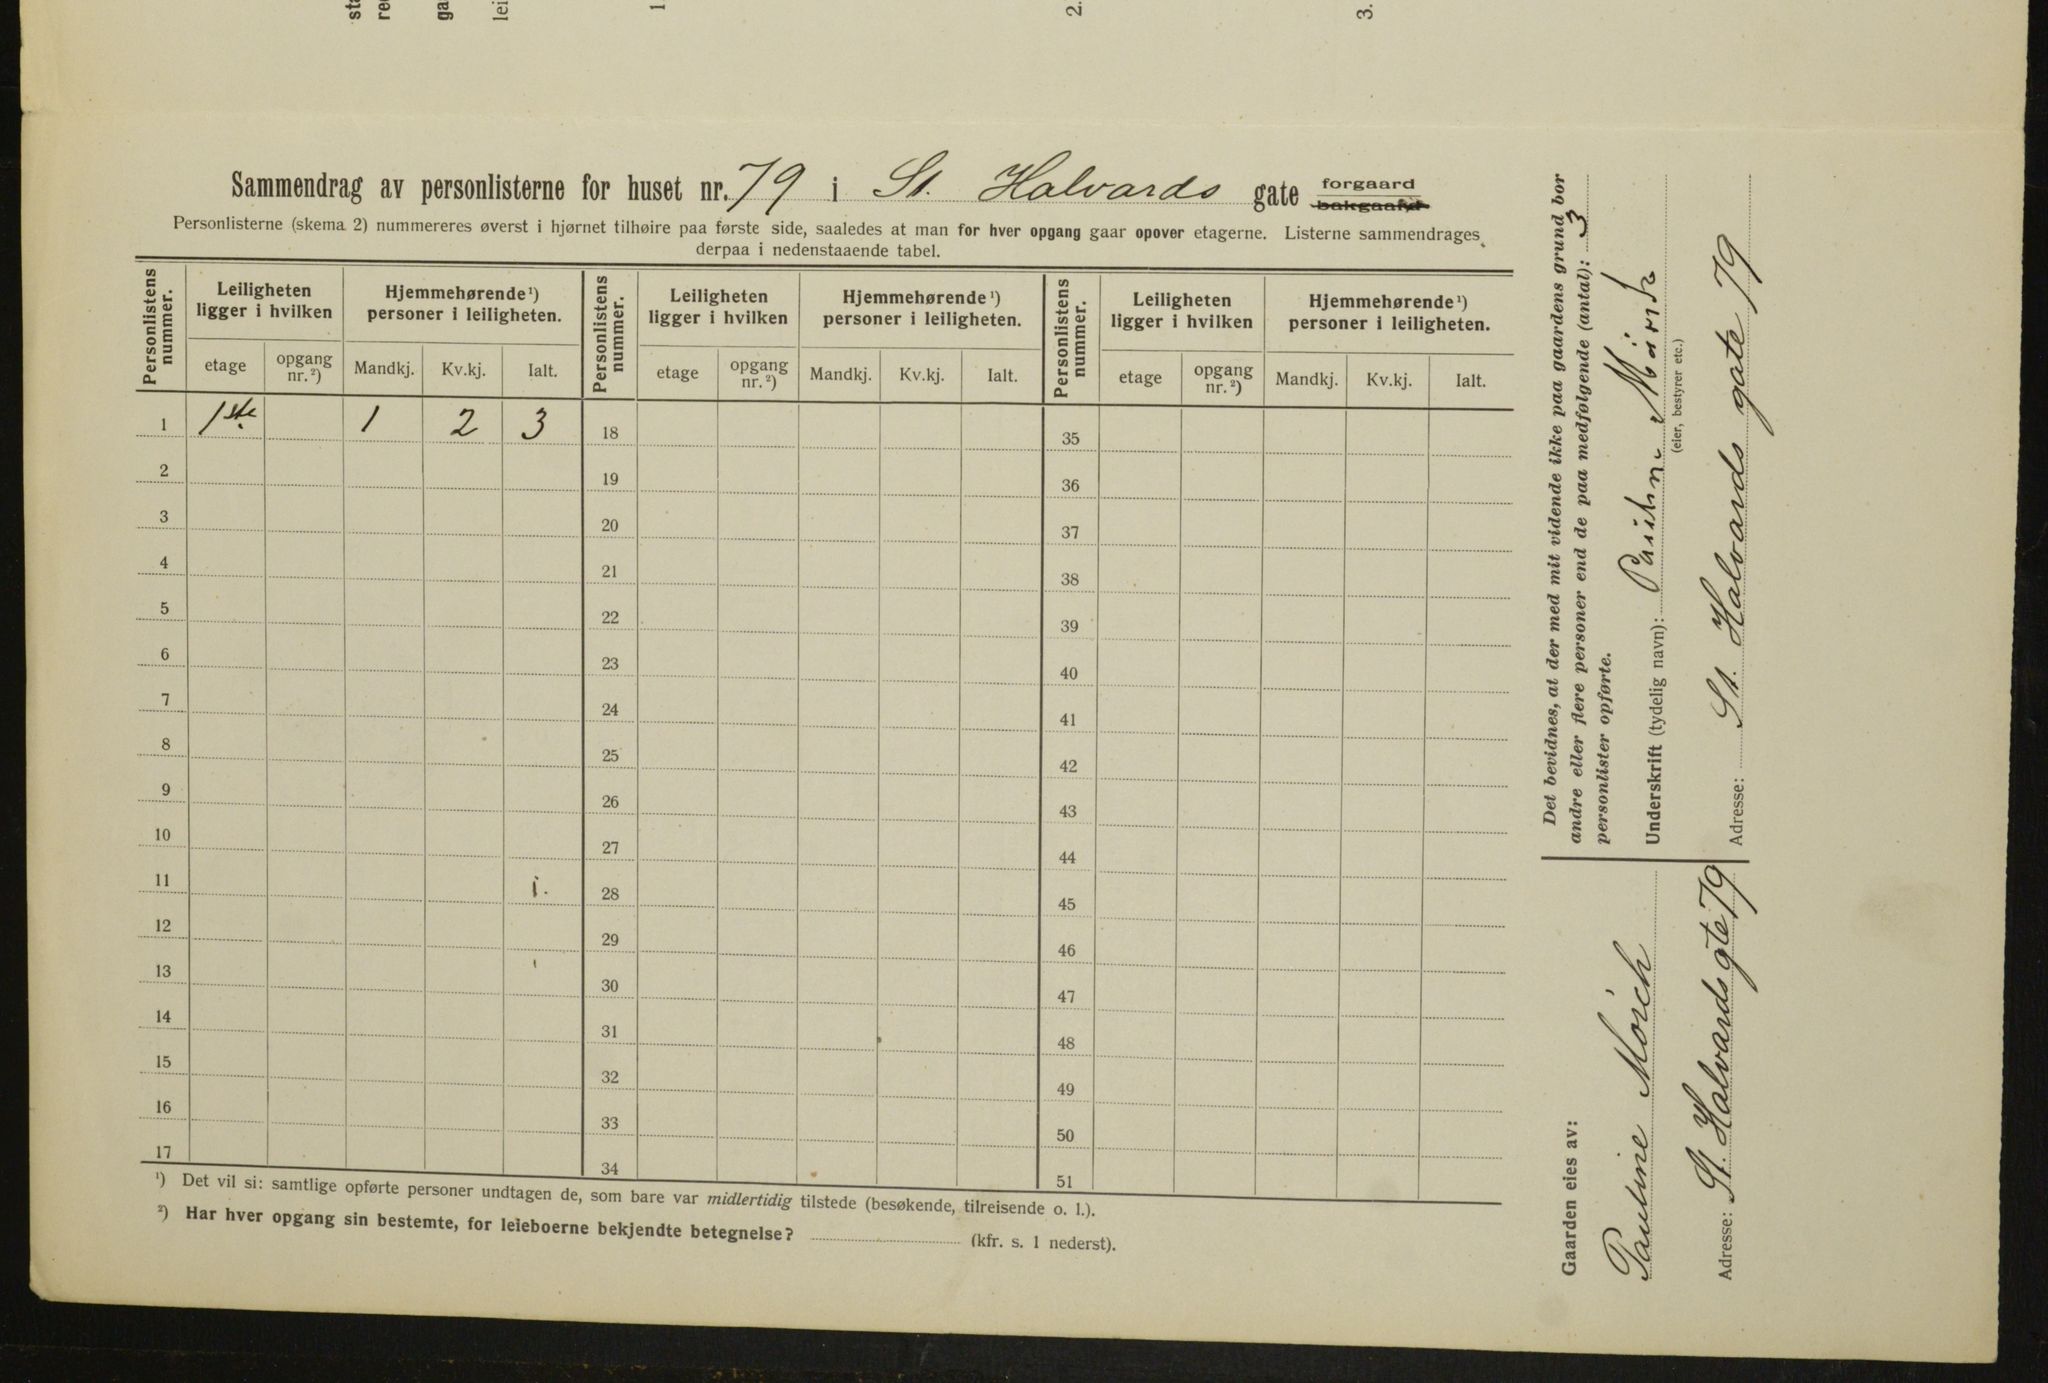 sta
re
ga
lei
1
2.
3.
Sammendrag av personlisterne for huset nr. 79 i St. Halvards gate forgaard
bakgaard
Personlisterne (skema 2) nummereres øverst i hjørnet tilhøire paa første side, saaledes at man for hver opgang gaar opover etagerne. Listerne sammendrages
derpaa i nedenstaaende tabel.
Personlistens nummer. | Leiligheten ligger i hvilken | Hjemmehørende ¹) personer i leiligheten. | Personlistens nummer. | Leiligheten ligger i hvilken | Hjemmehørende ¹) personer i leiligheten. | Personlistens nummer. | Leiligheten ligger i hvilken | Hjemmehørende ¹) personer i leiligheten.
etage | opgang nr. ²) | Mandkj. | Kv.kj. | Ialt. | etage | opgang nr. ²) | Mandkj. | Kv.kj. | Ialt. | etage | opgang nr. ²) | Mandkj. | Kv.kj. | Ialt.
1 1ste 1 2 3 18 35
2 19 36
3 20 37
4 21 38
5 22 39
6 23 40
7 24 41
8 25 42
9 26 43
10 27 44
11 28 45
12 29 46
13 30 47
14 31 48
15 32 49
16 33 50
17 34 51
¹) Det vil si: samtlige opførte personer undtagen de, som bare var midlertidig tilstede (besøkende, tilreisende o. l.).
²) Har hver opgang sin bestemte, for leieboerne bekjendte betegnelse? (kfr. s. 1 nederst).
Gaarden eies av:
Pauline Mörch
Adresse: St. Halvardsgte 79
Det bevidnes, at der med mit vidende ikke paa gaardens grund bor
andre eller flere personer end de paa medfølgende (antal): 3
personlister opførte.
Underskrift (tydelig navn): Pauline Mörch
(eier, bestyrer etc.)
Adresse: St. Halvards gate 79